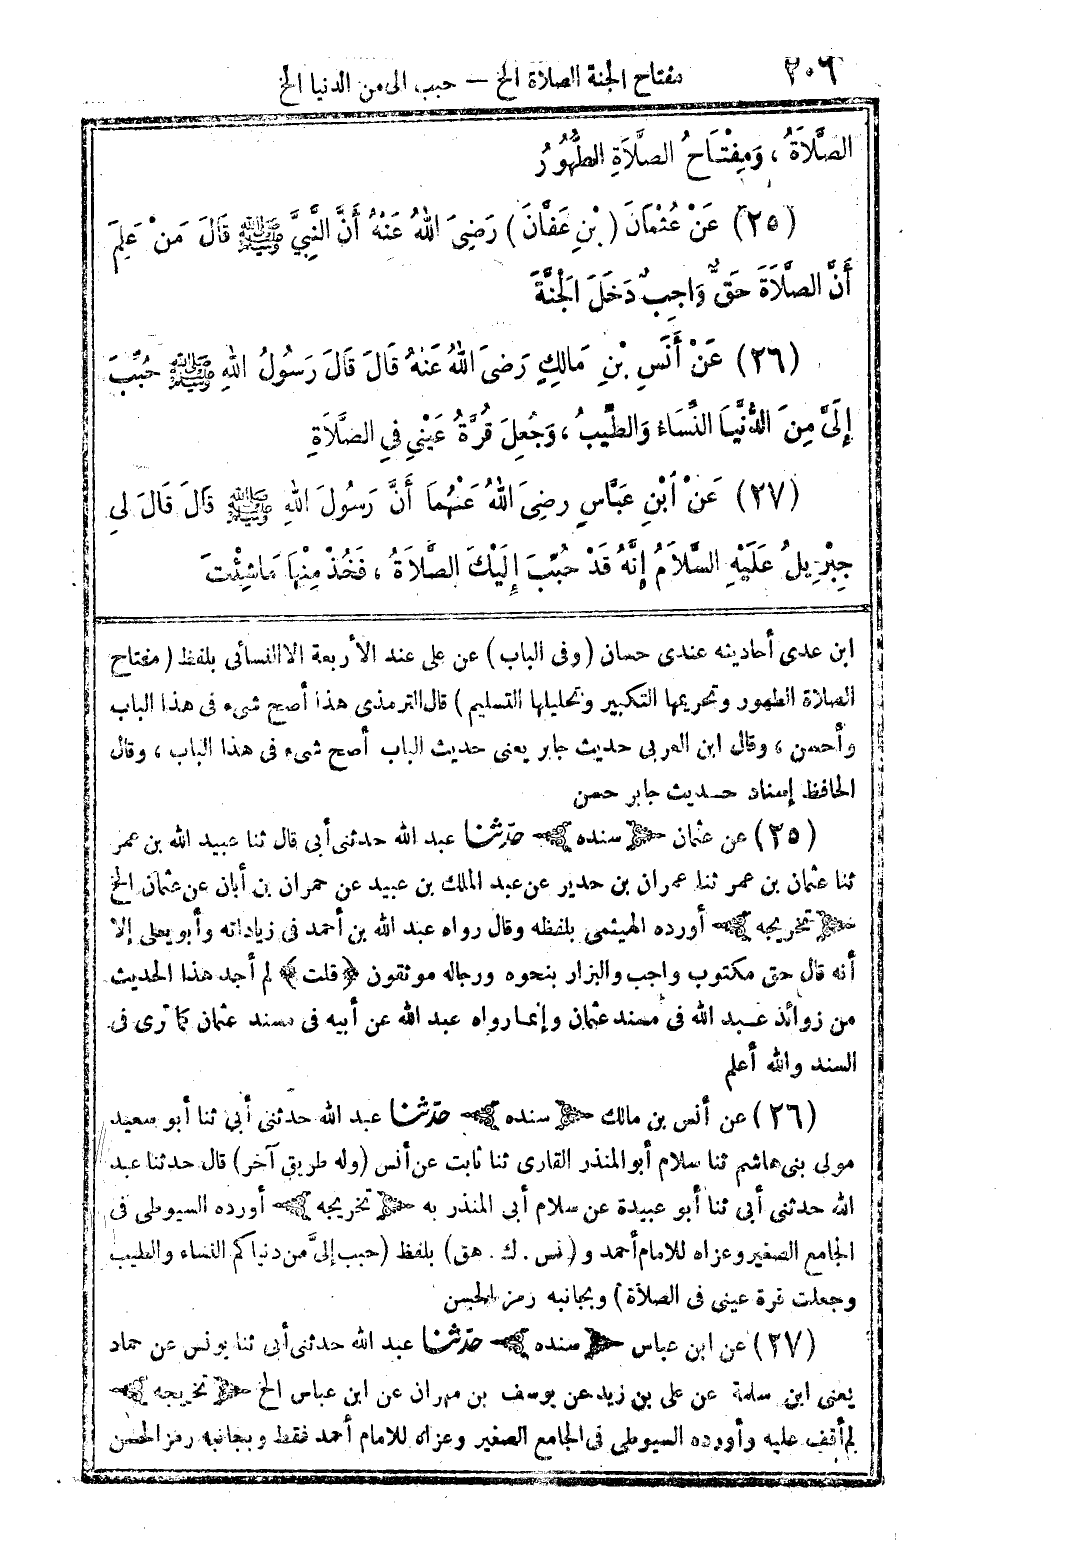 ٢٠٦
مفتاح الجنة الصلاة الخ — حبب الى من الدنيا الخ
الصَّلَاةُ ، وَمِفْتَاحُ الصَّلَاةِ الطُّهُورُ
(٢٥) عَنْ عُثْمَانَ (بْنِ عَفَّانَ) رَضِىَ اللهُ عَنْهُ أَنَّ النَّبِيَّ ﷺ قَالَ مَنْ عَلِمَ
أَنَّ الصَّلَاةَ حَقٌّ وَاجِبٌ دَخَلَ الْجَنَّةَ
(٢٦) عَنْ أَنَسِ بْنِ مَالِكٍ رَضِىَ اللهُ عَنْهُ قَالَ قَالَ رَسُولُ اللهِ ﷺ حُبِّبَ
إِلَىَّ مِنَ الدُّنْيَا النِّسَاءُ وَالطِّيبُ ، وَجُعِلَ قُرَّةُ عَيْنِي فِي الصَّلَاةِ
(٢٧) عَنْ ابْنِ عَبَّاسٍ رضِىَ اللهُ عَنْهُمَا أَنَّ رَسُولَ اللهِ ﷺ قَالَ قَالَ لِي
جِبْرِيلُ عَلَيْهِ السَّلَامُ إِنَّهُ قَدْ حُبِّبَ إِلَيْكَ الصَّلَاةُ ، فَخُذْ مِنْهَا مَا شِئْتَ
ابن عدى أحاديثه عندى حسان (وفى الباب) عن على عند الأربعة الا النسائى بلفظ (مفتاح
الصلاة الطهور وتحريمها التكبير وتحليلها التسليم) قال الترمذى هذا أصح شىء فى هذا الباب
وأحسن ، وقال ابن العربى حديث جابر يعنى حديث الباب أصح شىء فى هذا الباب ، وقال
الحافظ إسناد حديث جابر حسن
(٢٥) عن عثمان ﴿ سنده ﴾ حدّثنا عبد الله حدثنى أبى قال ثنا عبيد الله بن عمر
ثنا عثمان بن عمر ثنا عمران بن حدير عن عبد الملك بن عبيد عن حمران بن أبان عن عثمان الخ
﴿ تخريجه ﴾ أورده الهيثمى بلفظه وقال رواه عبد الله بن أحمد فى زياداته وأبو يعلى إلا
أنه قال حق مكتوب واجب والبزار بنحوه ورجاله موثقون ﴿قلت﴾ لم أجد هذا الحديث
من زوائد عبد الله فى مسند عثمان وإنما رواه عبد الله عن أبيه فى مسند عثمان كما ترى فى
السند والله أعلم
(٢٦) عن أنس بن مالك ﴿ سنده ﴾ حدّثنا عبد الله حدثنى أبى ثنا أبو سعيد
مولى بنى هاشم ثنا سلام أبو المنذر القارى ثنا ثابت عن أنس (وله طريق آخر) قال حدثنا عبد
الله حدثنى أبى ثنا أبو عبيدة عن سلام أبى المنذر به ﴿ تخريجه ﴾ أورده السيوطى فى
الجامع الصغير وعزاه للامام أحمد و (نس . ك . هق) بلفظ (حبب إلىَّ من دنياكم النساء والطيب
وجعلت قرة عينى فى الصلاة) وبجانبه رمز الحسن
(٢٧) عن ابن عباس ﴿ سنده ﴾ حدّثنا عبد الله حدثنى أبى ثنا يونس عن حماد
يعنى ابن سلمة عن على بن زيد عن يوسف بن مهران عن ابن عباس الخ ﴿ تخريجه ﴾
لم أقف عليه وأورده السيوطى فى الجامع الصغير وعزاه للامام أحمد فقط وبجانبه رمز الحسن